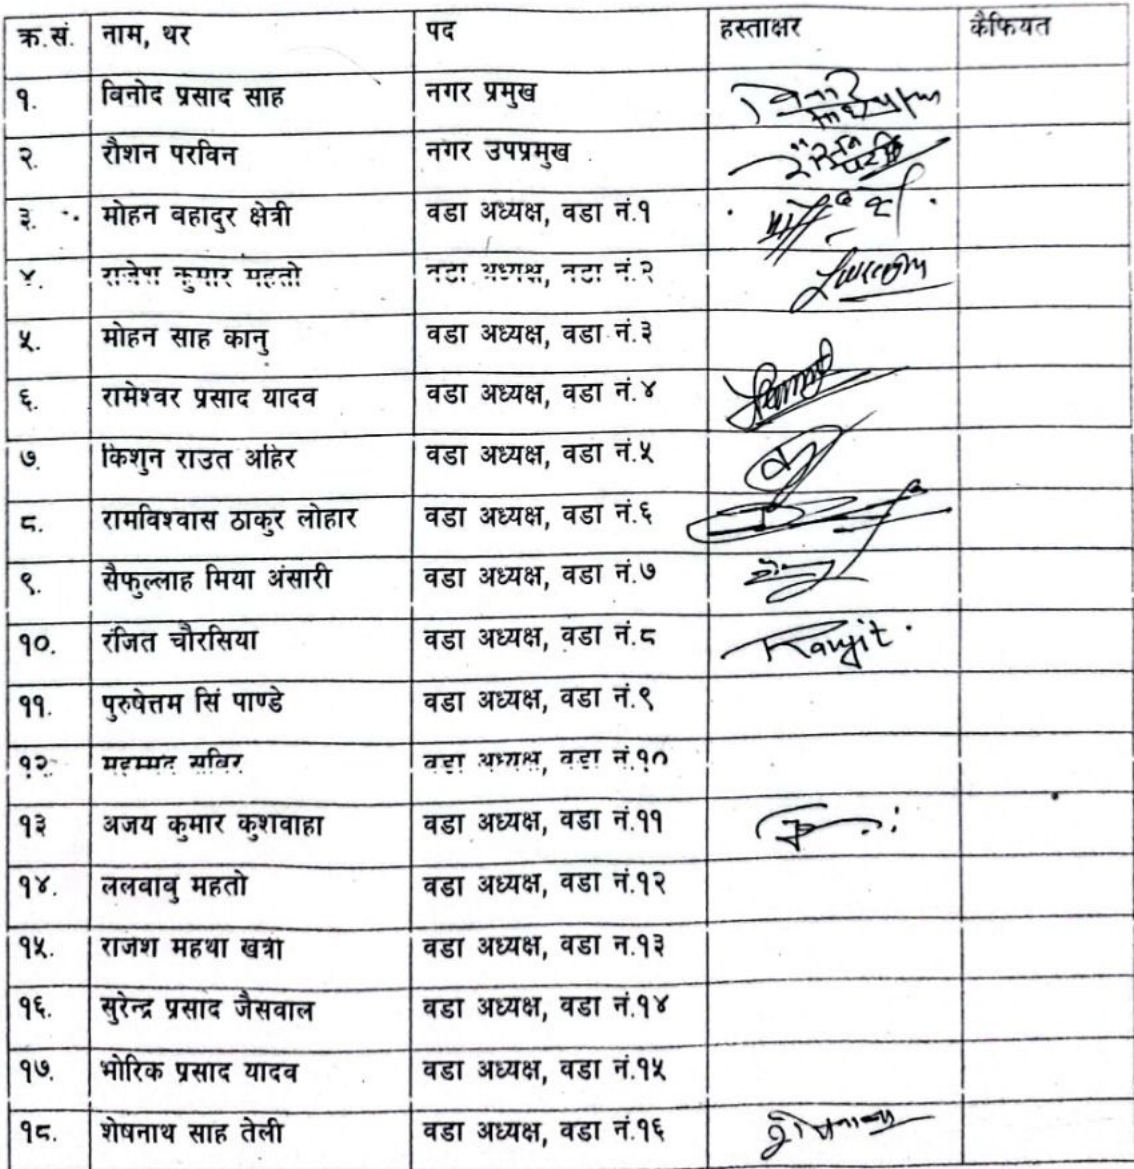 क्र.सं. नाम, थर पद हस्ताक्षर कैफियत
१. विनोद प्रसाद साह नगर प्रमुख
२. रौशन परविन नगर उपप्रमुख
३. मोहन बहादुर क्षेत्री वडा अध्यक्ष, वडा नं.१
४. राजेश कुमार महतो वडा अध्यक्ष, वडा नं.२
५. मोहन साह कानु वडा अध्यक्ष, वडा नं.३
६. रामेश्वर प्रसाद यादव वडा अध्यक्ष, वडा नं.४
७. किशुन राउत अहिर वडा अध्यक्ष, वडा नं.५
८. रामविश्वास ठाकुर लोहार वडा अध्यक्ष, वडा नं.६
९. सैफुल्लाह मिया अंसारी वडा अध्यक्ष, वडा नं.७
१०. रंजित चौरसिया वडा अध्यक्ष, वडा नं.८ Ranjit
११. पुरुषेत्तम सिं पाण्डे वडा अध्यक्ष, वडा नं.९
१२ महम्मद सविर वडा अध्यक्ष, वडा नं.१०
१३ अजय कुमार कुशवाहा वडा अध्यक्ष, वडा नं.११
१४. ललवावु महतो वडा अध्यक्ष, वडा नं.१२
१५. राजेश महथा खत्री वडा अध्यक्ष, वडा नं.१३
१६. सुरेन्द्र प्रसाद जैसवाल वडा अध्यक्ष, वडा नं.१४
१७. भोरिक प्रसाद यादव वडा अध्यक्ष, वडा नं.१५
१८. शेषनाथ साह तेली वडा अध्यक्ष, वडा नं.१६